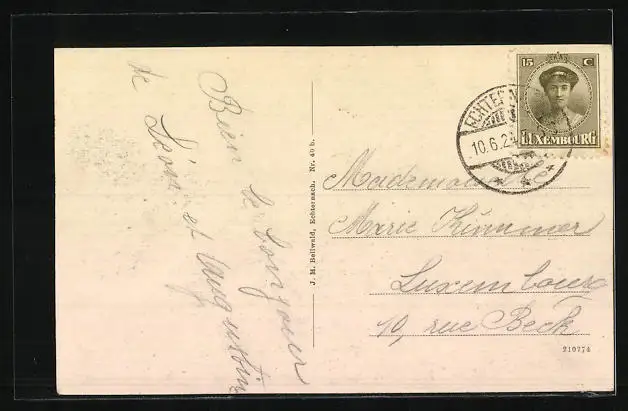 Bien le bonjour
de Léon et Augustin
J. M. Bellwald, Echternach. Nr. 40 b.
15 C
LUXEMBOURG
10.6.2
Mademoiselle
Marie Kümmer
Luxembourg
10, rue Beck
210774